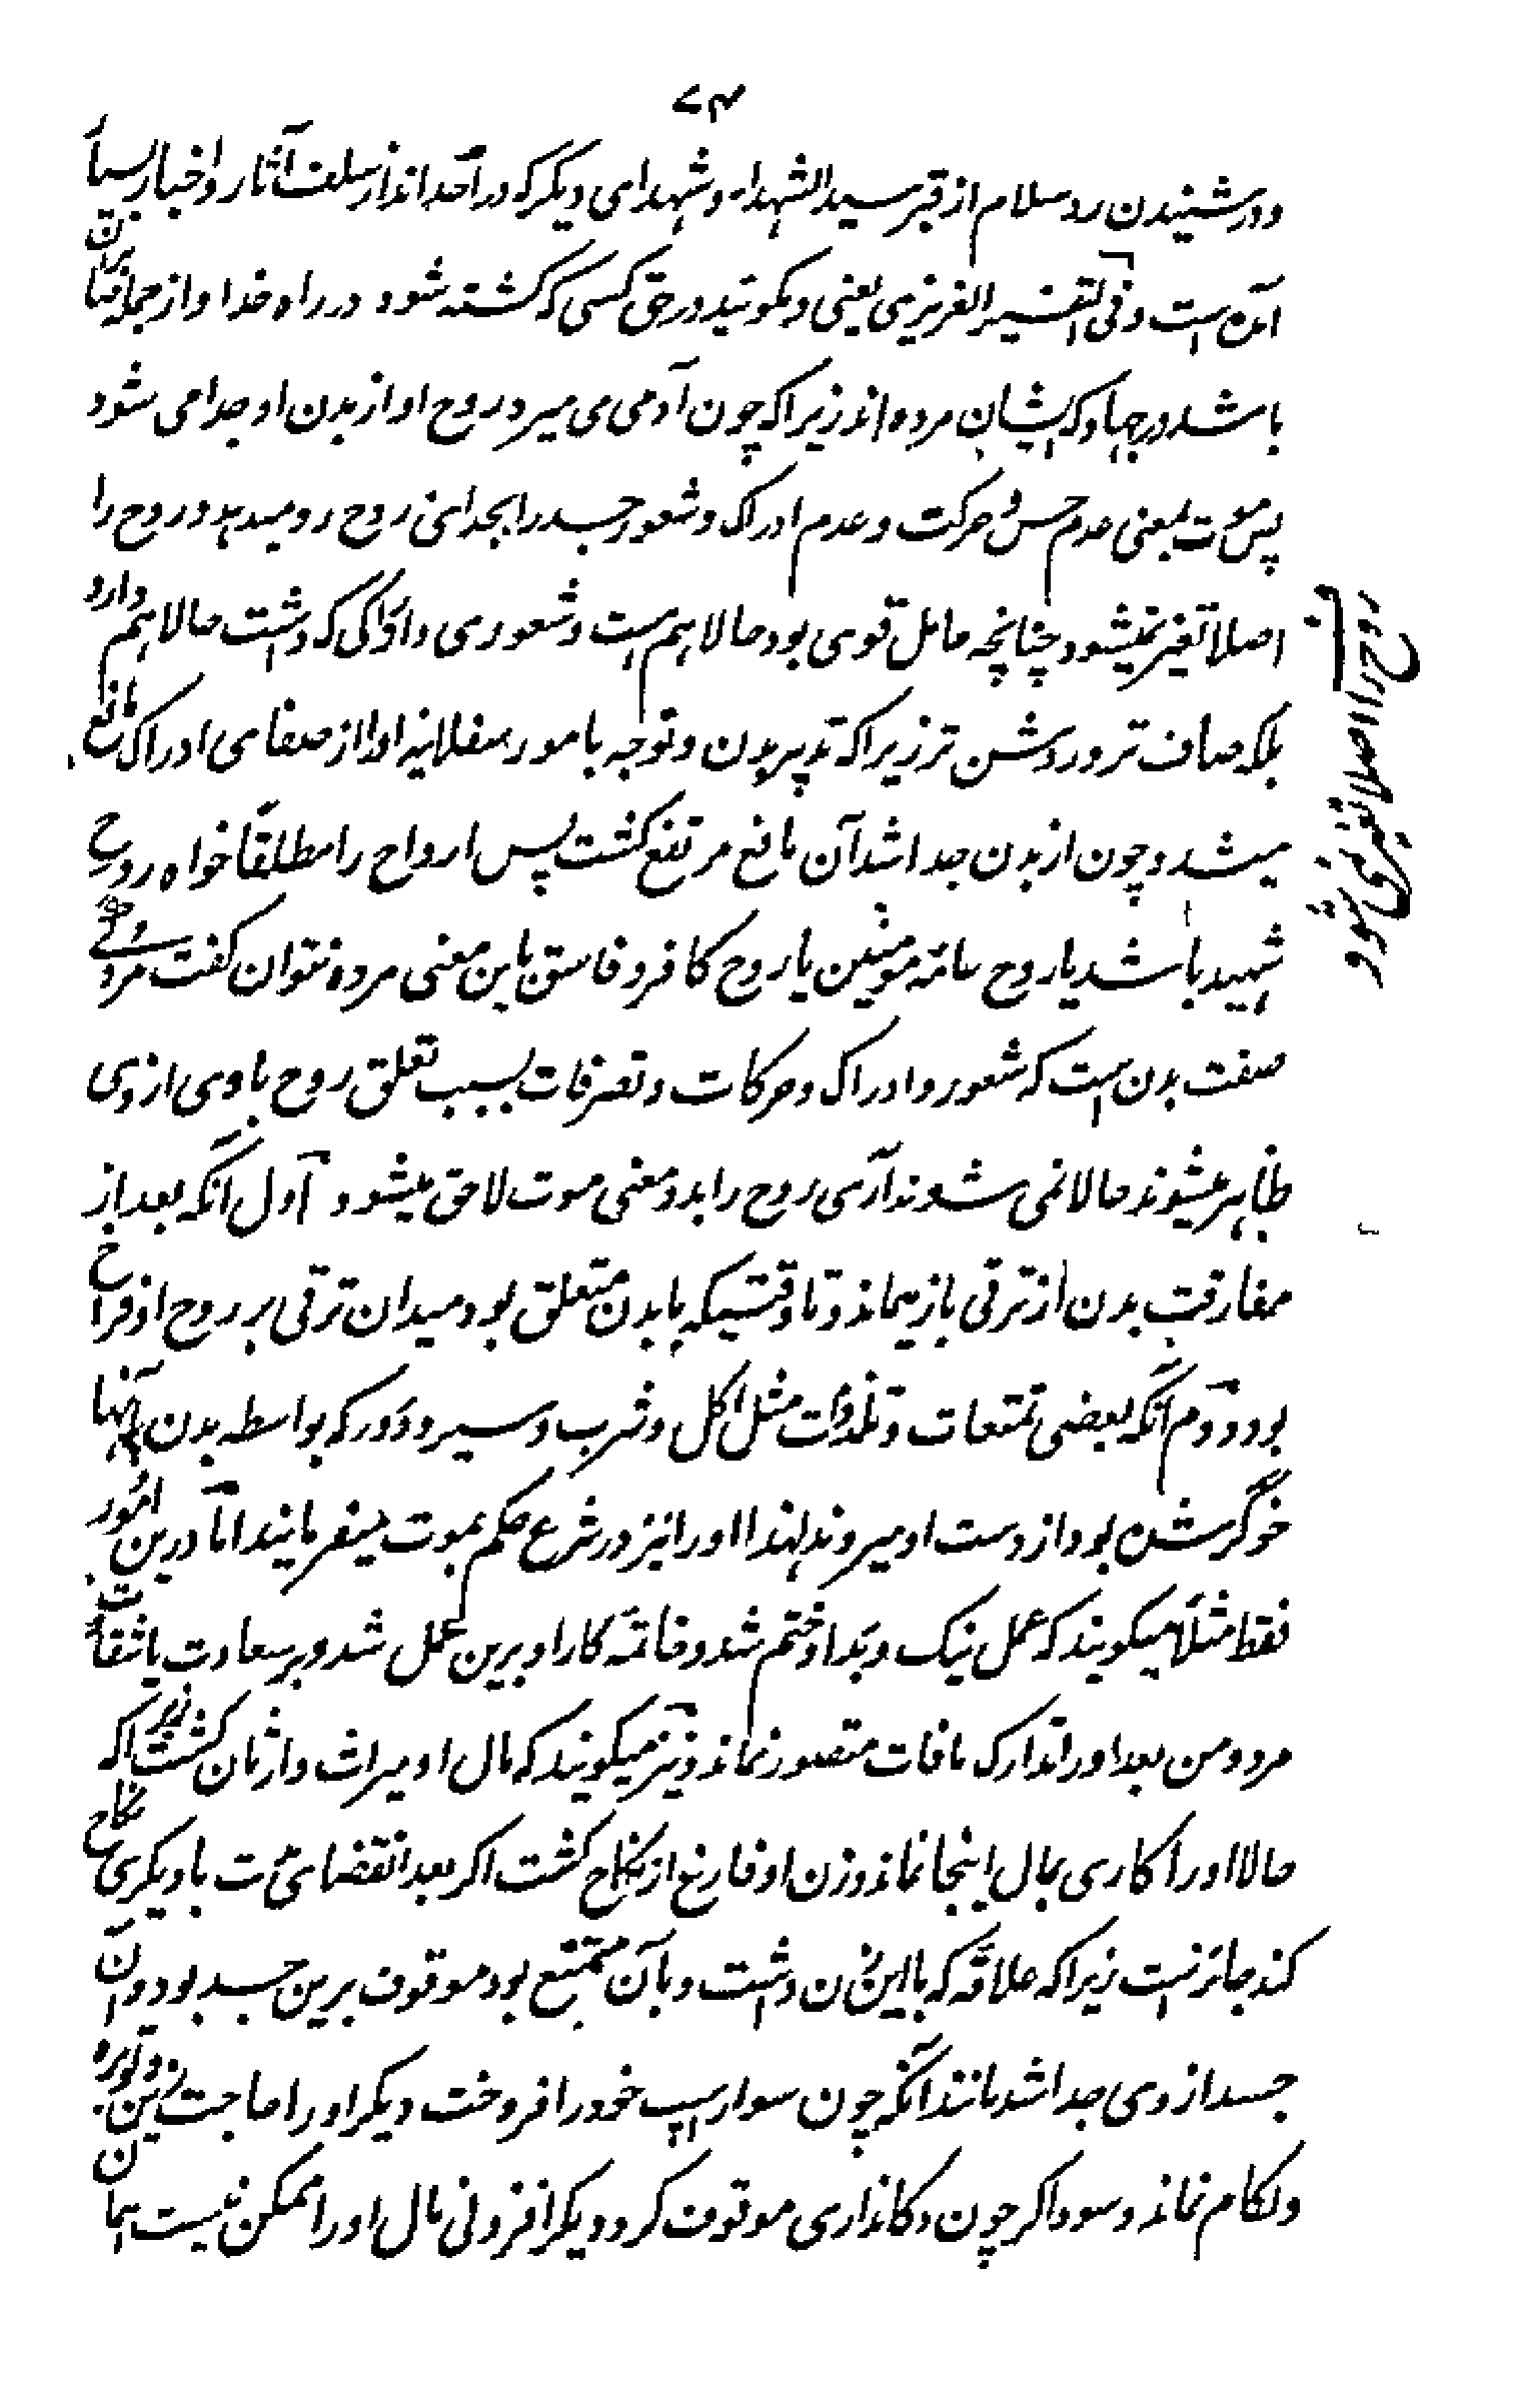 ۷۴
و در شنیدن رد سلام از قبر سید الشهداء و شهدای دیگر که در احد اند از سلف آثار و اخبار بسیار
آمده است و فی التفسیر العزیزی یعنی و مگوئید در حق کسی که کشته شود در راه خدا و از جمله فانیان
باشد در جهاد که ایشان مرده اند زیراکه چون آدمی می میرد روح او از بدن او جدا می شود
پس موت بمعنی عدم حس و حرکت و عدم ادراک و شعور جسد را بجدائی روح رو میدهد و روح را
اصلا تغیر نمیشود چنانچه حامل قوی بود حالا هم هست و شعوری و ادراکی که داشت حالا هم دارد
بلکه صاف تر و روشن تر زیراکه تدبیر بدن و توجه بامور سفلانیه او را از صفای ادراک مانع
میشد و چون از بدن جدا شد آن مانع مرتفع گشت پس ارواح را مطلقًا خواه روح
شهید باشد یا روح عامّه مومنین یا روح کافر و فاسق باین معنی مرده نتوان گفت مردگی
صفت بدن است که شعور و ادراک و حرکات و تصرفات بسبب تعلق روح باوی از وی
ظاهر میشوند حالا نمی شوند آری روح را بدو معنی موت لاحق میشود اول آنکه بعد از
مفارقت بدن از ترقی باز میماند و تا وقتیکه با بدن متعلق بود میدان ترقی بر روح او فراخ
بود و دوم آنکه بعضی تمتعات و تلذذات مثل اکل و شرب و سیر و دور که بواسطه بدن بآنها
خوگر شده بود از دست او میروند لهذا او را نیز در شرع حکم بموت میفرمایند اما درین امور
فقط مثلاً میگویند که عمل نیک و بد او ختم شد و خاتمه کار او برین عمل شد و بر سعادت یا شقاوت
مرد و من بعد او را تدارک مافات متصور نماند و نیز میگویند که مال او میراث وارثان گشت زیراکه
حالا او را کاری بمال اینجا نماند و زن او فارغ از نکاح گشت اگر بعد انقضای عدت با دیگری نکاح
کند جائز است زیراکه علاقه که با این زن داشت و بآن متمتع بود موقوف برین جسد بود و آن
جسد از وی جدا شد مانند آنکه چون سوار اسپ خود را فروخت دیگر او را حاجت زین و توبره
و لگام نماند و سوداگر چون دکانداری موقوف کرد دیگر افزونی مال او را ممکن نیست
روح را اصلا تغیر نمی شود